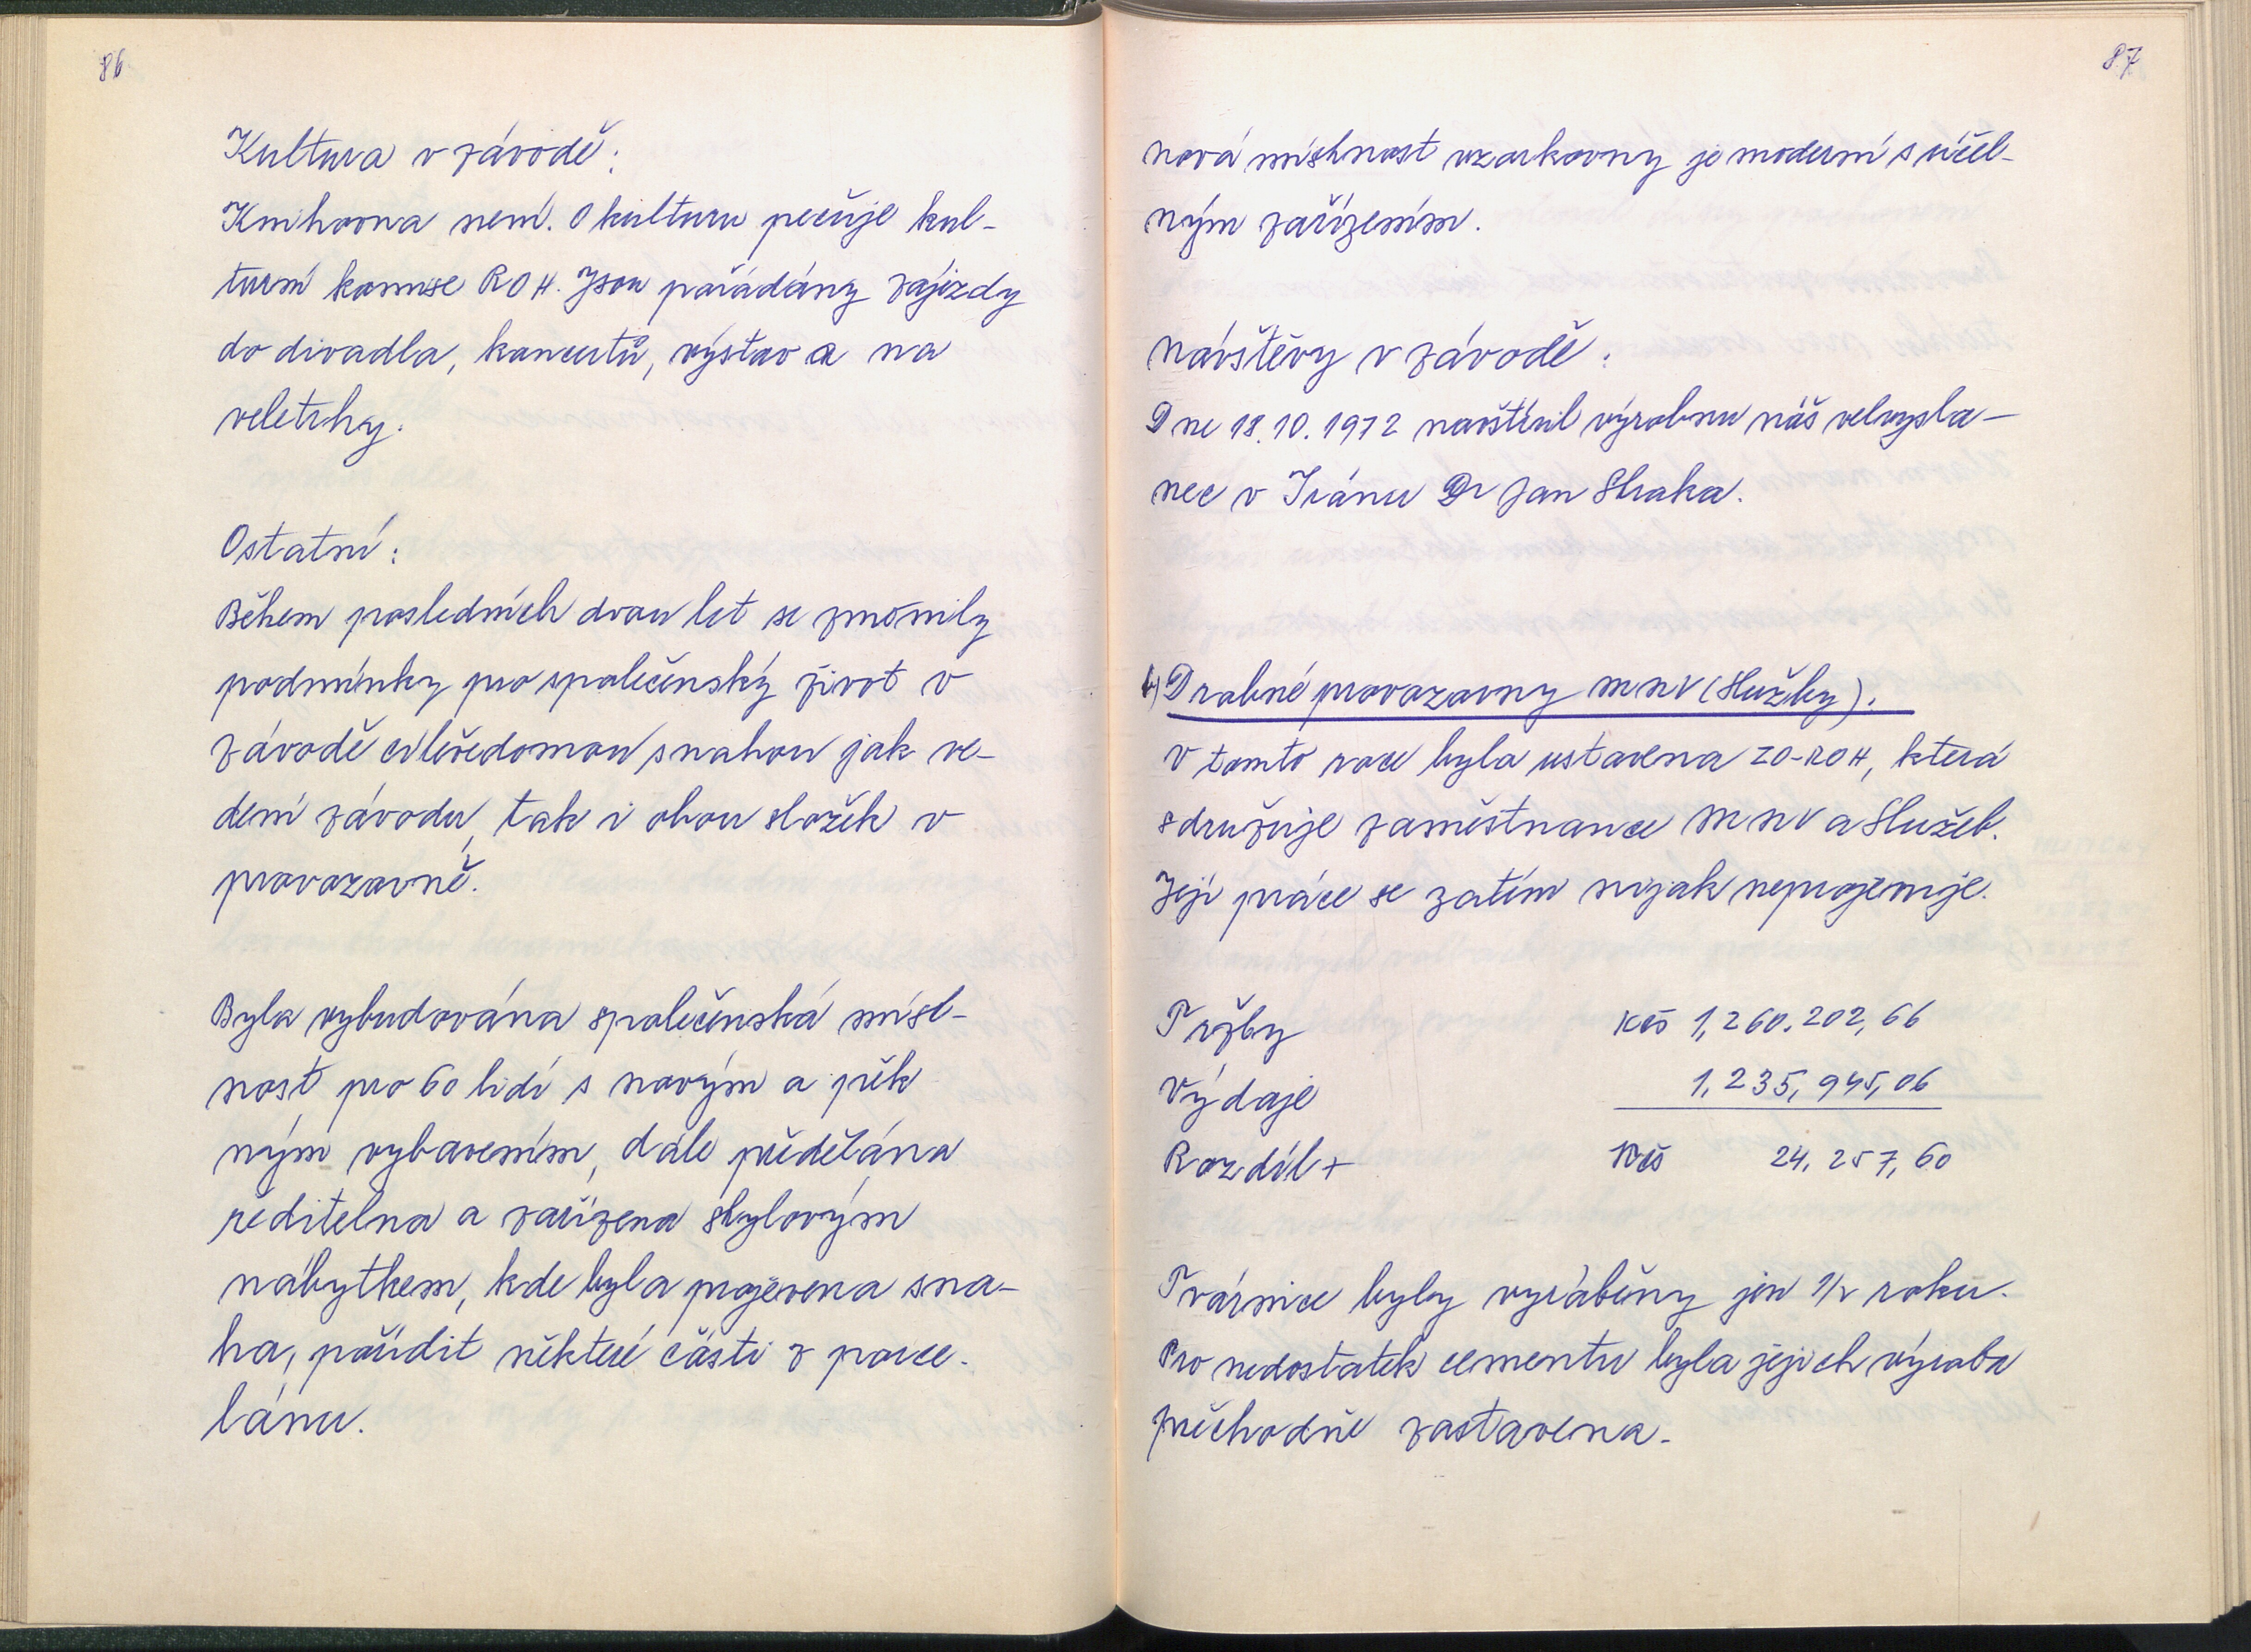 86
Kultura v závodě:
Knihovna není. O kulturu pečuje kul-
turní komise ROH. Jsou pořádány zájezdy
do divadla, koncertů, výstav a na
veletrhy.
Ostatní:
Během posledních dvou let se změnily
podmínky pro společenský život v
závodě cílevědomou snahou jak ve-
dení závodu, tak i obou složek v
provozovně.
Byla vybudována společenská míst-
nost pro 60 lidí s novým a pěk
ným vybavením, dále předělána
ředitelna a zařízena stylovým
nábytkem, kde byla projevena sna-
ha, pořídit některé části z porce-
lánu.
87
nová místnost vzorkovny je moderní s účel-
ným zařízením.
Návštěvy v závodě:
Dne 18.10.1972 navštívil výrobnu náš velvysla-
nec v Iránu Dr Jan Straka.
b) Drobné provozovny MNV (Služby).
V tomto roce byla ustavena ZO-ROH, která
sdružuje zaměstnance MNV a Služeb.
Její práce se zatím nijak neprojevuje.
Tržby Kčs 1,260.202,66
Výdaje 1,235,945,06
Rozdíl + Kčs 24.257,60
Tvárnice byly vyráběny jen 1/2 roku.
Pro nedostatek cementu byla jejich výroba
přechodně zastavena.